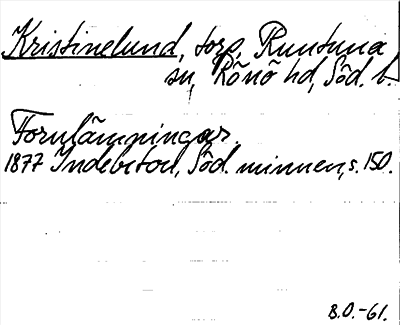 Kristinelund, torp, Runtuna
sn, Rönö hd, Söd. l.
Fornlämningar.
1877 Indebetou, Söd. minnen, s. 150.
B.O.-61.